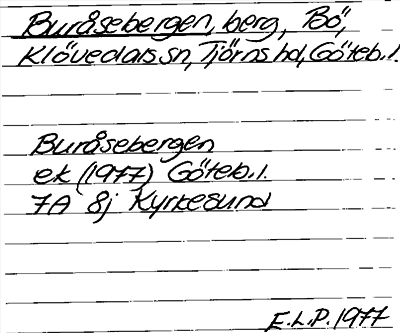 Buråsebergen, berg, Bö,
Klövedals sn, Tjörns hd, Göteb. l.
Buråsebergen
ek (1977) Göteb. l.
7A 8j Kyrkesund
E.L.P. 1977